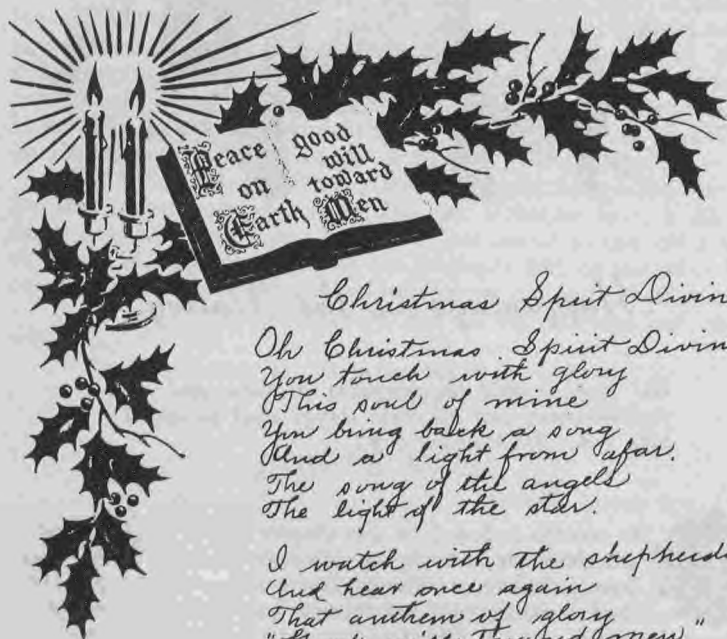 Peace
on
Earth
good
will
toward
Men
Christmas Spirit Divin
Oh Christmas Spirit Divin
You touch with glory
This soul of mine
You bring back a song
And a light from afar.
The song of the angels
The light of the star.
I watch with the shepherds
And hear once again
That anthem of glory
"Good will toward men"